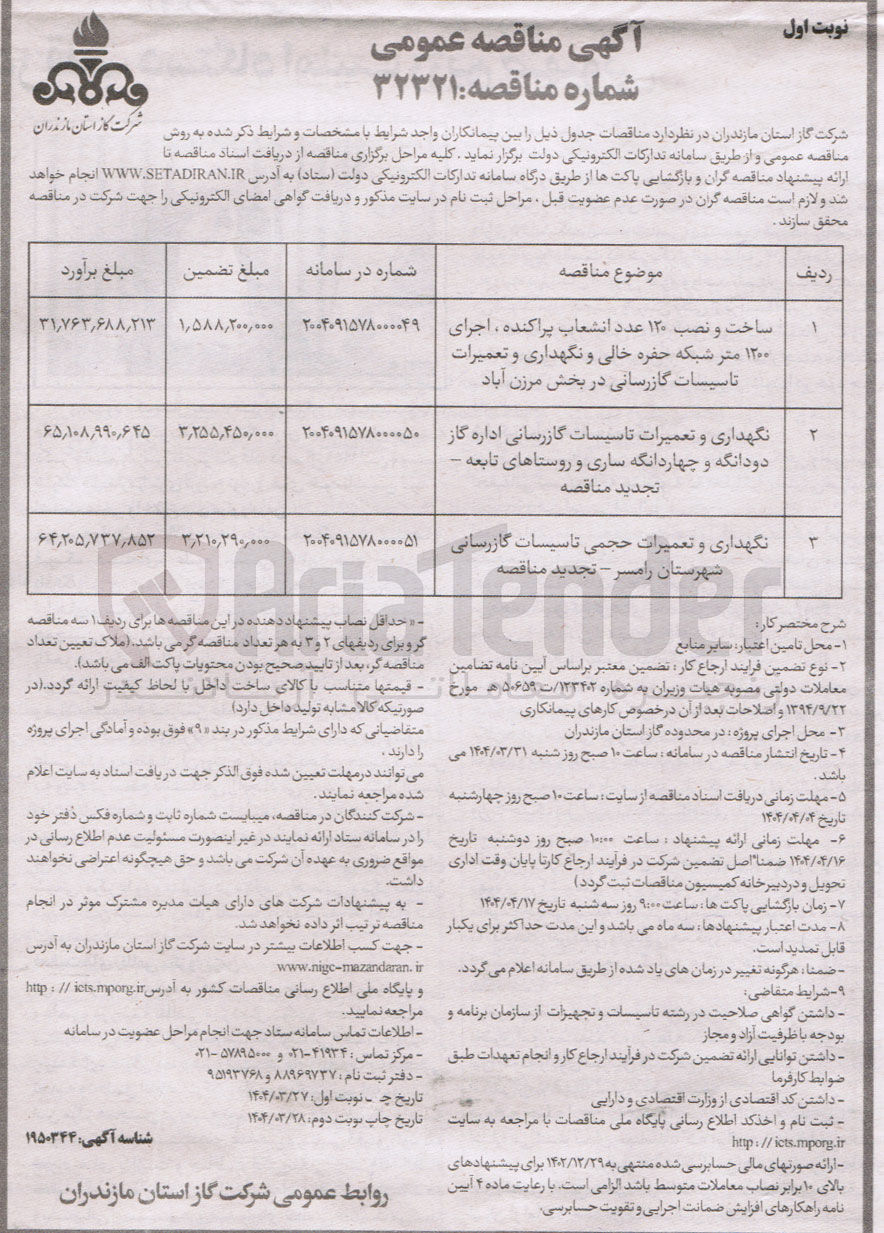 نوبت اول
آگهی مناقصه عمومی
شماره مناقصه: ۳۲۳۲۱
شرکت گاز استان مازندران
شرکت گاز استان مازندران در نظردارد مناقصات جدول ذیل را بین پیمانکاران واجد شرایط با مشخصات و شرایط ذکر شده به روش
مناقصه عمومی و از طریق سامانه تدارکات الکترونیکی دولت برگزار نماید . کلیه مراحل برگزاری مناقصه از دریافت اسناد مناقصه تا
ارائه پیشنهاد مناقصه گران و بازگشایی پاکت ها از طریق درگاه سامانه تدارکات الکترونیکی دولت (ستاد) به آدرس WWW.SETADIRAN.IR انجام خواهد
شد و لازم است مناقصه گران در صورت عدم عضویت قبل ، مراحل ثبت نام در سایت مذکور و دریافت گواهی امضای الکترونیکی را جهت شرکت در مناقصه
محقق سازند .
ردیف موضوع مناقصه شماره در سامانه مبلغ تضمین مبلغ برآورد
۱ ساخت و نصب ۱۲۰ عدد انشعاب پراکنده ، اجرای ۲۰۰۴۰۹۱۵۷۸۰۰۰۰۴۹ ۱,۵۸۸,۲۰۰,۰۰۰ ۳۱,۷۶۳,۶۸۸,۲۱۳
۱۲۰۰ متر شبکه حفره خالی و نگهداری و تعمیرات
تاسیسات گازرسانی در بخش مرزن آباد
۲ نگهداری و تعمیرات تاسیسات گازرسانی اداره گاز ۲۰۰۴۰۹۱۵۷۸۰۰۰۰۵۰ ۳,۲۵۵,۴۵۰,۰۰۰ ۶۵,۱۰۸,۹۹۰,۶۴۵
دودانگه و چهاردانگه ساری و روستاهای تابعه –
تجدید مناقصه
۳ نگهداری و تعمیرات حجمی تاسیسات گازرسانی ۲۰۰۴۰۹۱۵۷۸۰۰۰۰۵۱ ۳,۲۱۰,۲۹۰,۰۰۰ ۶۴,۲۰۵,۷۳۷,۸۵۲
شهرستان رامسر – تجدید مناقصه
AriaTender
شرح مختصر کار :
۱- محل تامین اعتبار: سایر منابع
۲- نوع تضمین فرایند ارجاع کار : تضمین معتبر براساس آیین نامه تضامین
معاملات دولتی مصوبه هیات وزیران به شماره ۱۲۳۴۰۲/ت ۵۰۶۵۹ هـ مورخ
۱۳۹۴/۹/۲۲ و اصلاحات بعد از آن درخصوص کارهای پیمانکاری
۳- محل اجرای پروژه : در محدوده گاز استان مازندران
۴- تاریخ انتشار مناقصه در سامانه : ساعت ۱۰ صبح روز شنبه ۱۴۰۴/۰۳/۳۱ می
باشد .
۵- مهلت زمانی دریافت اسناد مناقصه از سایت : ساعت ۱۰ صبح روز چهارشنبه
تاریخ ۱۴۰۴/۰۴/۰۴
۶- مهلت زمانی ارائه پیشنهاد : ساعت ۱۰:۰۰ صبح روز دوشنبه تاریخ
۱۴۰۴/۰۴/۱۶ ضمنا"اصل تضمین شرکت در فرایند ارجاع کارتا پایان وقت اداری
تحویل و در دبیرخانه کمیسیون مناقصات ثبت گردد)
۷- زمان بازگشایی پاکت ها : ساعت ۹:۰۰ روز سه شنبه تاریخ ۱۴۰۴/۰۴/۱۷
۸- مدت اعتبار پیشنهادها : سه ماه می باشد و این مدت حداکثر برای یکبار
قابل تمدید است.
- ضمنا : هرگونه تغییر در زمان های یاد شده از طریق سامانه اعلام می گردد.
۹- شرایط متقاضی:
- داشتن گواهی صلاحیت در رشته تاسیسات و تجهیزات از سازمان برنامه و
بودجه با ظرفیت آزاد و مجاز
- داشتن توانایی ارائه تضمین شرکت در فرآیند ارجاع کار و انجام تعهدات طبق
ضوابط کارفرما
- داشتن کد اقتصادی از وزارت اقتصادی و دارایی
- ثبت نام و اخذکد اطلاع رسانی پایگاه ملی مناقصات با مراجعه به سایت
http : // icts.mporg.ir
- ارائه صورتهای مالی حسابرسی شده منتهی به ۱۴۰۲/۱۲/۲۹ برای پیشنهادهای
بالای ۱۰ برابر نصاب معاملات متوسط باشد الزامی است. با رعایت ماده ۴ آیین
نامه راهکارهای افزایش ضمانت اجرایی و تقویت حسابرسی.
- « حداقل نصاب پیشنهاد دهنده در این مناقصه ها برای ردیف۱ سه مناقصه
گر و برای ردیفهای ۲ و ۳ به هر تعداد مناقصه گر می باشد. (ملاک تعیین تعداد
مناقصه گر، بعد از تایید صحیح بودن محتویات پاکت الف می باشد).
- قیمتها متناسب با کالای ساخت داخل با لحاظ کیفیت ارائه گردد.(در
صورتیکه کالا مشابه تولید داخل دارد)
متقاضیانی که دارای شرایط مذکور در بند « ۹» فوق بوده و آمادگی اجرای پروژه
را دارند ،
می توانند درمهلت تعیین شده فوق الذکر جهت دریافت اسناد به سایت اعلام
شده مراجعه نمایند .
- شرکت کنندگان در مناقصه، میبایست شماره ثابت و شماره فکس دفتر خود
را در سامانه ستاد ارائه نمایند در غیر اینصورت مسئولیت عدم اطلاع رسانی در
مواقع ضروری به عهده آن شرکت می باشد و حق هیچگونه اعتراضی نخواهند
داشت.
- به پیشنهادات شرکت های دارای هیات مدیره مشترک موثر در انجام
مناقصه ترتیب اثر داده نخواهد شد.
- جهت کسب اطلاعات بیشتر در سایت شرکت گاز استان مازندران به آدرس
www.nigc-mazandaran.ir
و پایگاه ملی اطلاع رسانی مناقصات کشور به آدرس http : // icts.mporg.ir
مراجعه نمایید.
- اطلاعات تماس سامانه ستاد جهت انجام مراحل عضویت در سامانه
- مرکز تماس : ۴۱۹۳۴-۰۲۱ و ۵۷۸۹۵۰۰۰-۰۲۱
- دفتر ثبت نام : ۸۸۹۶۹۷۳۷ و ۹۵۱۹۳۷۶۸
تاریخ چـ نوبت اول: ۱۴۰۴/۰۳/۲۷
تاریخ چاپ نوبت دوم: ۱۴۰۴/۰۳/۲۸
شناسه آگهی: ۱۹۵۰۳۴۴
روابط عمومی شرکت گاز استان مازندران